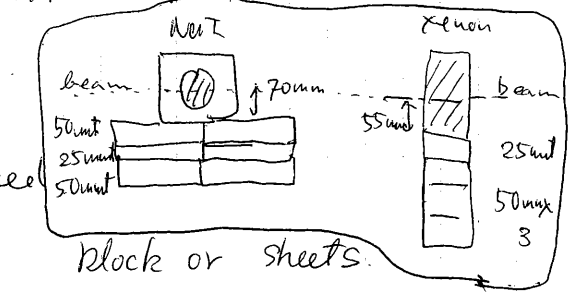 NaI xenon
beam 70mm beam
55mm
50mmt
25mmt 25mmt
50mmt 50mmx
3
block or sheets.